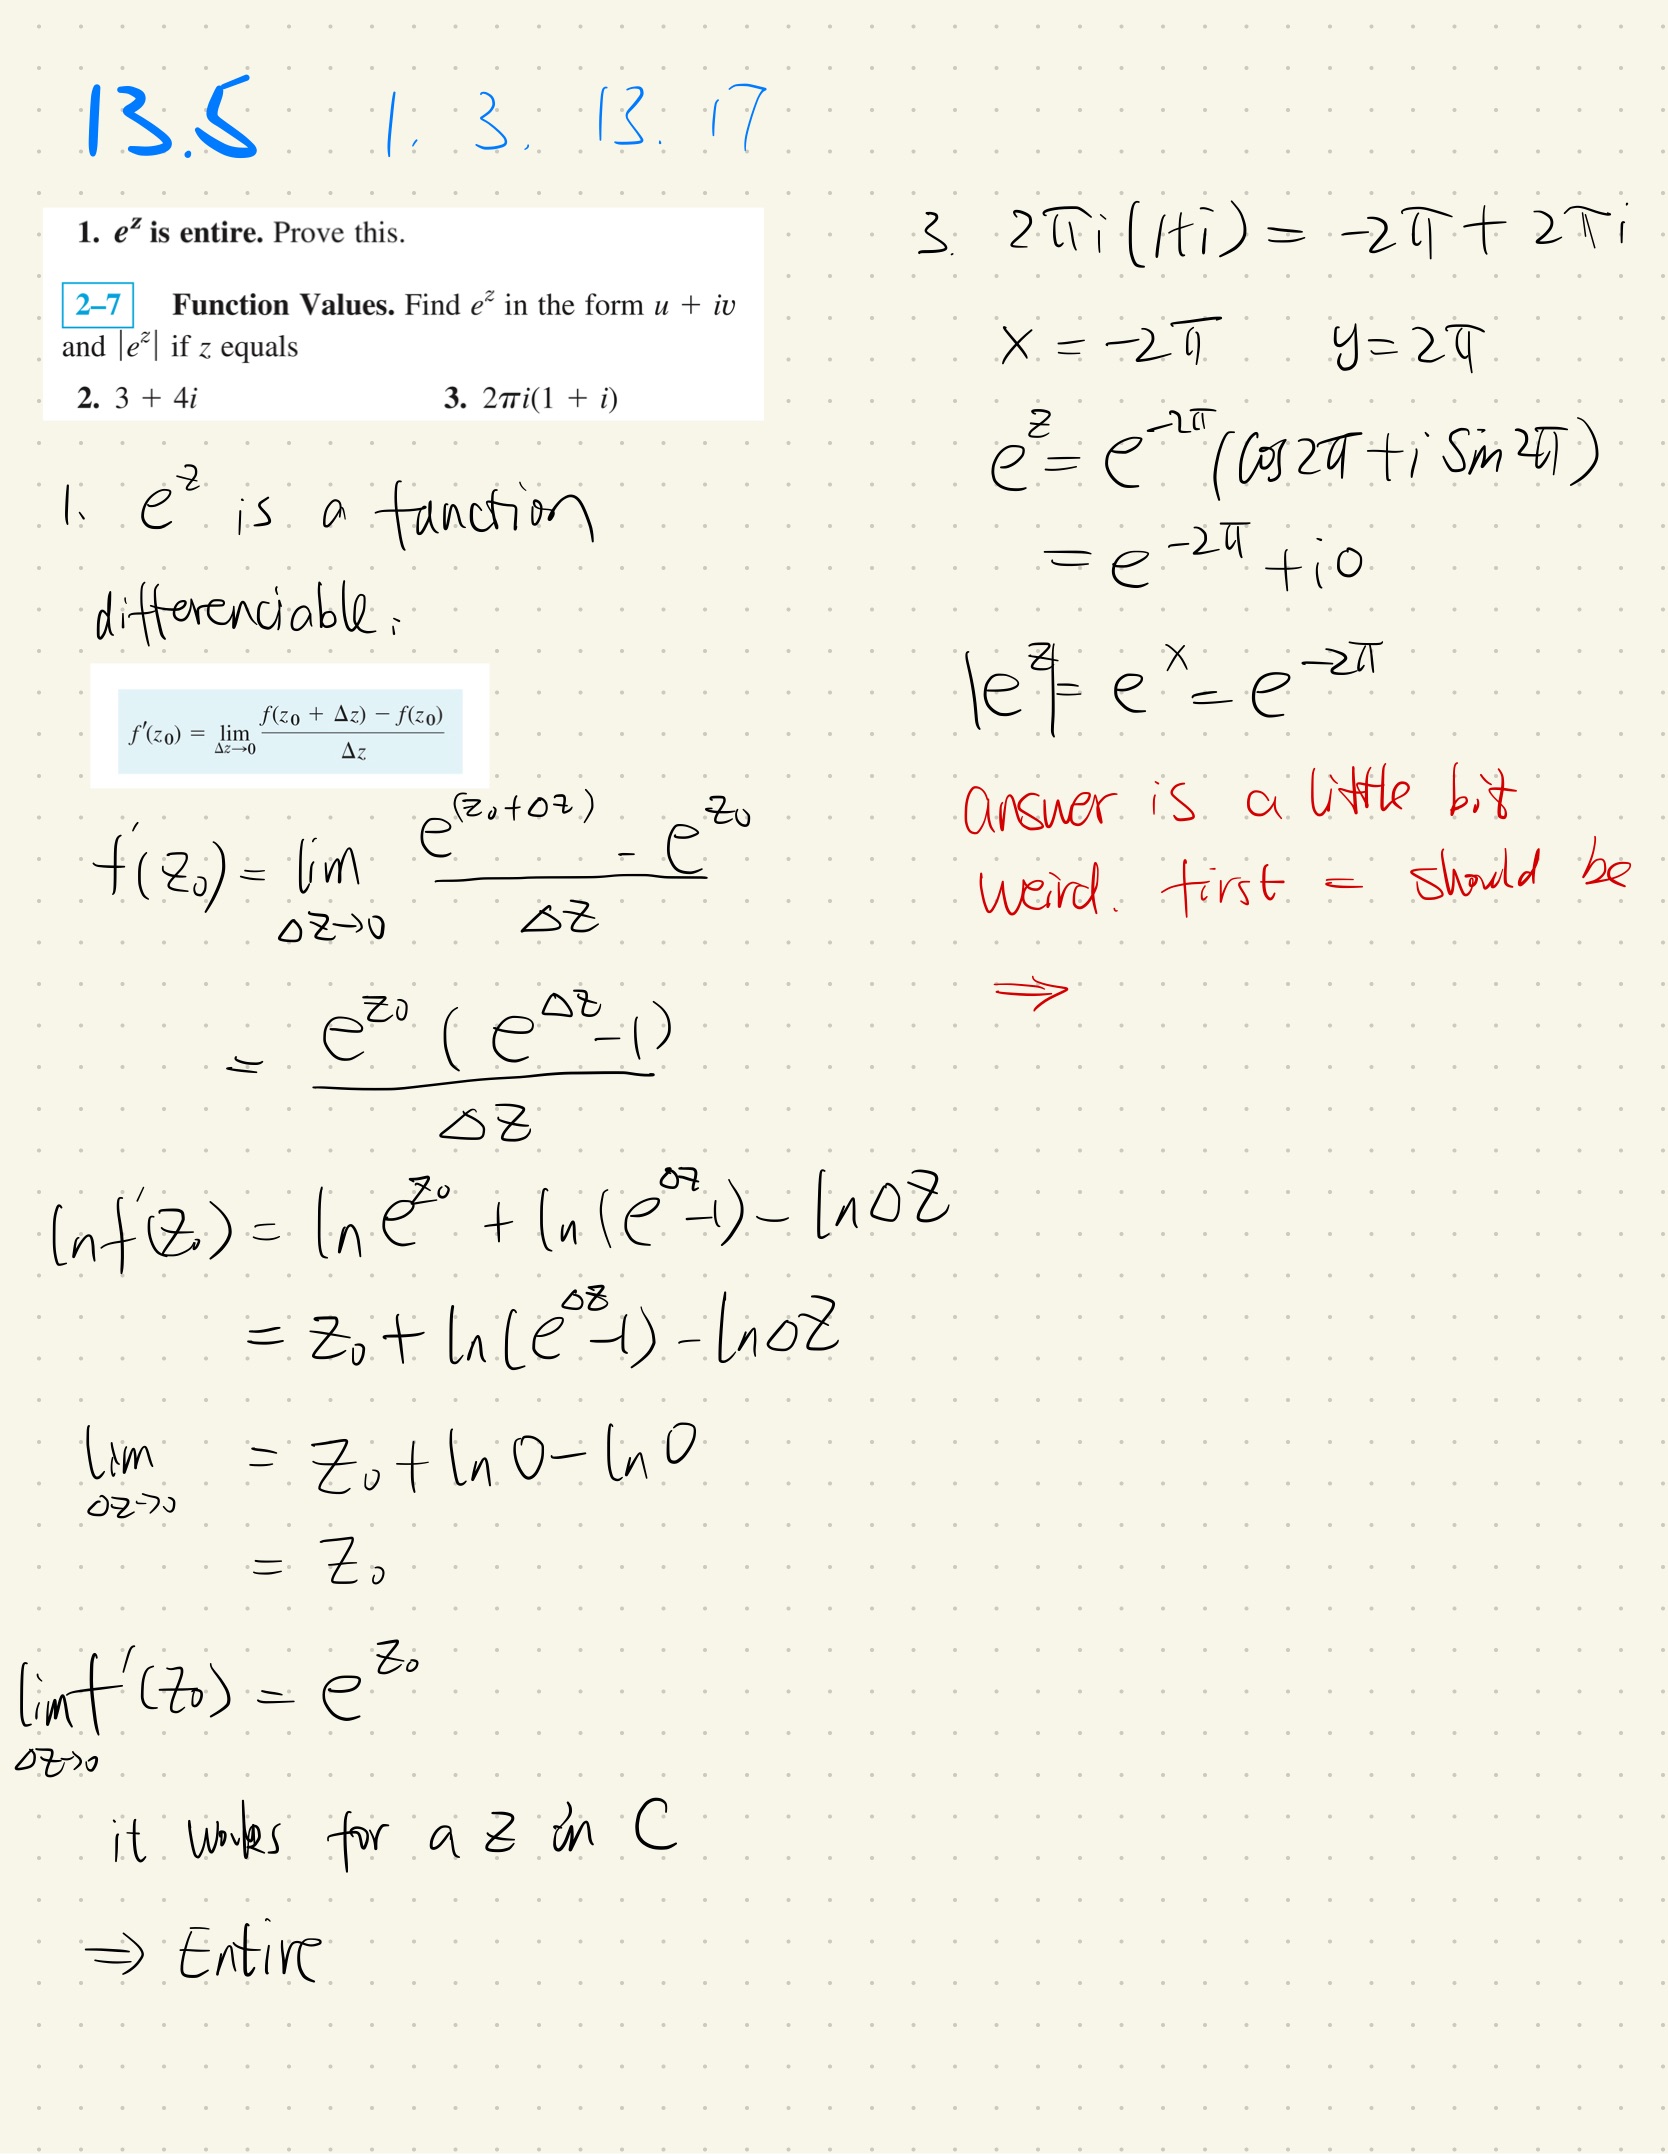 13.5 1. 3. 13. 17
1. e^z is entire. Prove this.
2–7 Function Values. Find e^z in the form u + iv
and |e^z| if z equals
2. 3 + 4i 3. 2πi(1 + i)
1. e^z is a function
differenciable.
f'(z₀) = lim_{Δz→0} (f(z₀ + Δz) − f(z₀)) / Δz
f'(z₀) = lim_{Δz→0} (e^{(z₀+Δz)} - e^{z₀}) / Δz
= e^{z₀} (e^{Δz} -1) / Δz
ln f'(z₀) = ln e^{z₀} + ln (e^{Δz} -1) - ln Δz
= z₀ + ln (e^{Δz} -1) - ln Δz
lim_{Δz→0} = z₀ + ln 0 - ln 0
= z₀
lim_{Δz→0} f'(z₀) = e^{z₀}
it works for a z in C
⇒ Entire
3. 2πi (1+i) = -2π + 2πi
x = -2π y = 2π
e^z = e^{-2π} (cos 2π + i sin 2π)
= e^{-2π} + i0
|e^z| = e^x = e^{-2π}
answer is a little bit
weird. first = should be
⇒